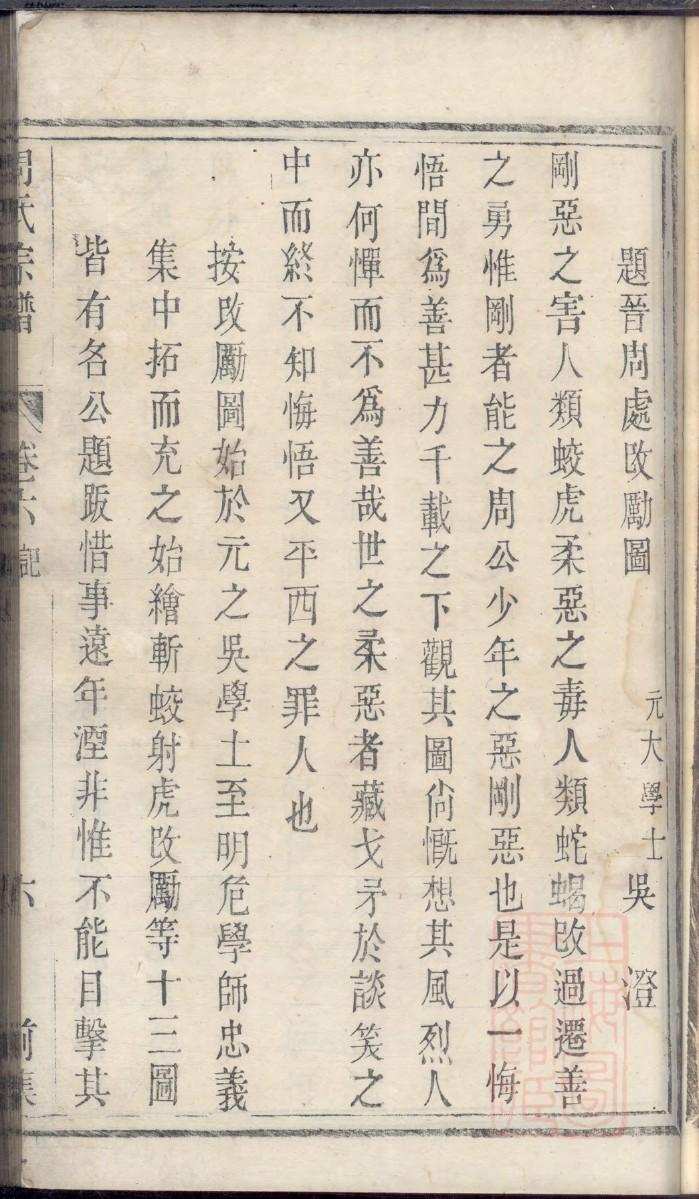 題晉周處改勵圖
元大學士吳 澄
剛惡之害人類蛟虎柔惡之毒人類蛇蝎改過遷善
之勇惟剛者能之周公少年之惡剛惡也是以一悔
悟間爲善甚力千載之下觀其圖尙慨想其風烈人
亦何憚而不爲善哉世之柔惡者藏戈矛於談笑之
中而終不知悔悟又平西之罪人也
按改勵圖始於元之吳學士至明危學師忠義
集中拓而充之始繪斬蛟射虎改勵等十三圖
皆有名公題跋惜事遠年湮非惟不能目擊其
周氏宗譜
卷六 記
六
前集